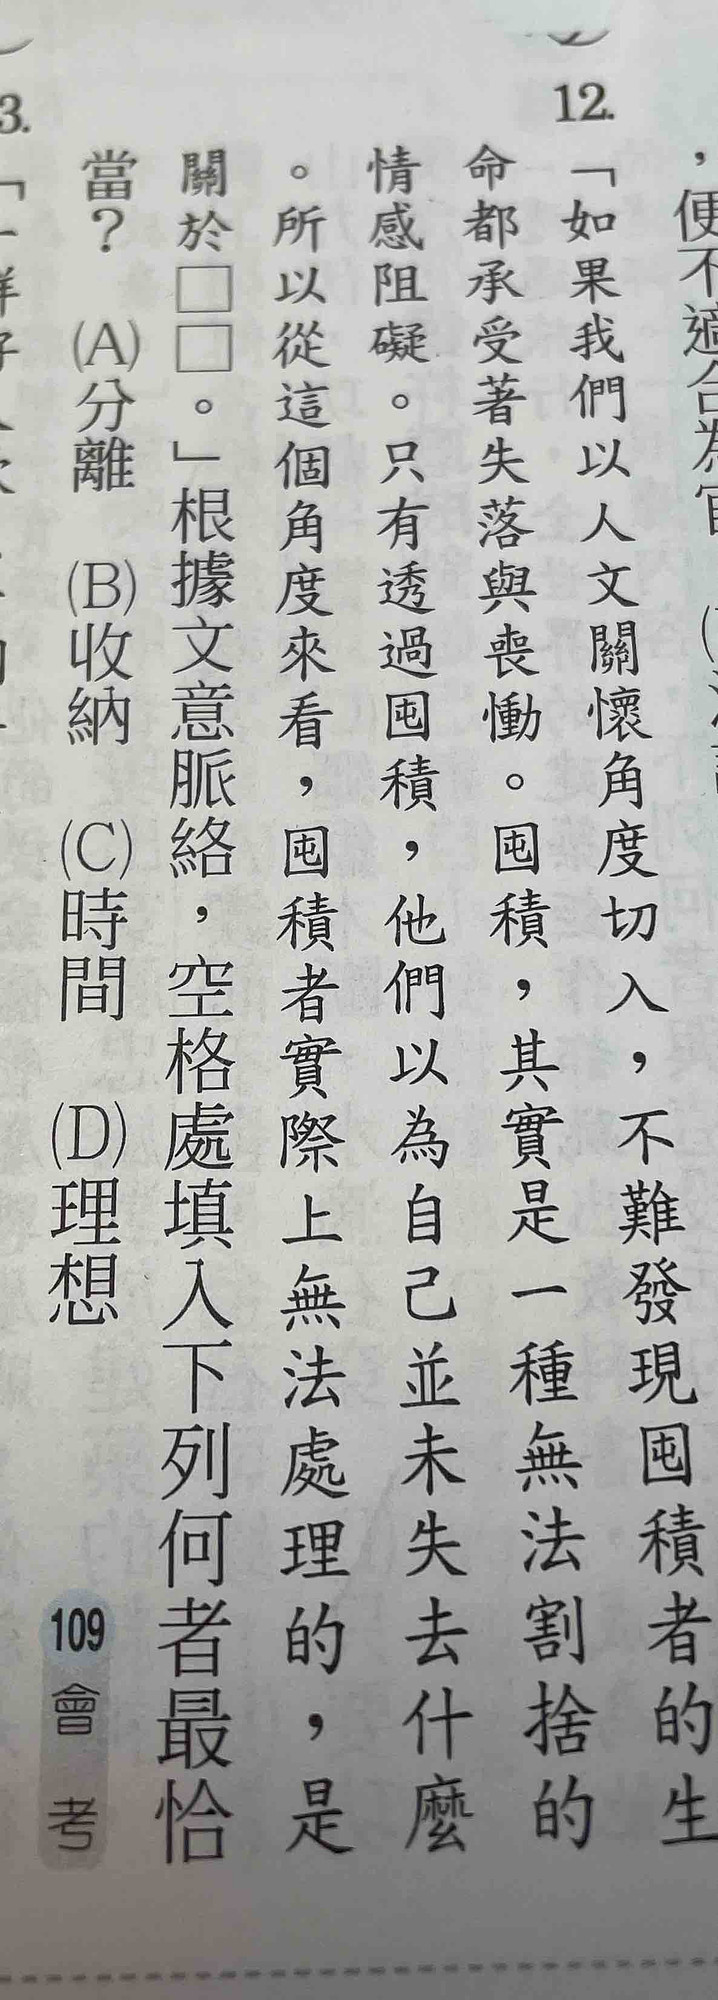 ，便不適合為官
12.
「如果我們以人文關懷角度切入，不難發現囤積者的生
命都承受著失落與喪慟。囤積，其實是一種無法割捨的
情感阻礙。只有透過囤積，他們以為自己並未失去什麼
。所以從這個角度來看，囤積者實際上無法處理的，是
關於□□。」根據文意脈絡，空格處填入下列何者最恰
當？ (A)分離 (B)收納 (C)時間 (D)理想
109會考
3.